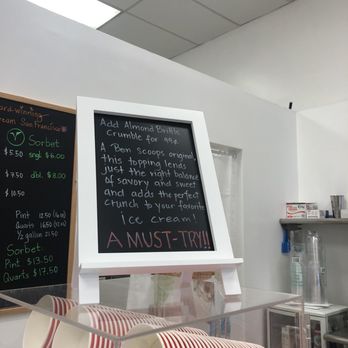 ard-winning
ream San Francisco
Sorbet
$5.50 sngl $6.00
$7.50 dbl. $8.00
$10.50
Pint 12.50 (16oz)
Quarts 16.50 (32oz)
1/2 gallon 21.50
Sorbet
Pint $13.50
Quarts $17.50
Add Almond Brittle
Crumble for 99¢
A Ben scoops original,
this topping lends
just the right balance
of savory and sweet
and adds the perfect
crunch to your favorite
ice cream!
A MUST-TRY!!